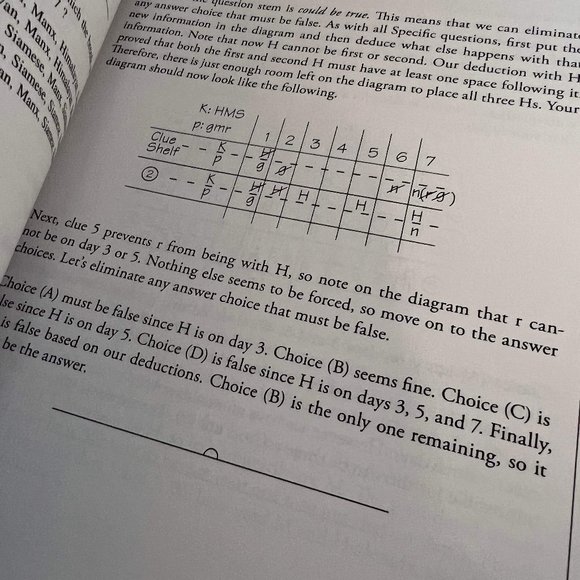 which the
7 ?
Manx, Himalayan
Manx,
Siamese, Manx,
Siamese,
Manx,
question stem is could be true. This means that we can eliminate
any answer choice that must be false. As with all Specific questions, first put the
new information in the diagram and then deduce what else happens with that
information. Note that now H cannot be first or second. Our deduction with H
proved that both the first and second H must have at least one space following it.
Therefore, there is just enough room left on the diagram to place all three Hs. Your
diagram should now look like the following.
K: HMS
p: gmr
1 2 3 4 5 6 7
Clue K H
Shelf p g g n n(r g)
② K H H H H H
p g n
Next, clue 5 prevents r from being with H, so note on the diagram that r can-
not be on day 3 or 5. Nothing else seems to be forced, so move on to the answer
choices. Let's eliminate any answer choice that must be false.
Choice (A) must be false since H is on day 3. Choice (B) seems fine. Choice (C) is
lse since H is on day 5. Choice (D) is false since H is on days 3, 5, and 7. Finally,
is false based on our deductions. Choice (B) is the only one remaining, so it
be the answer.